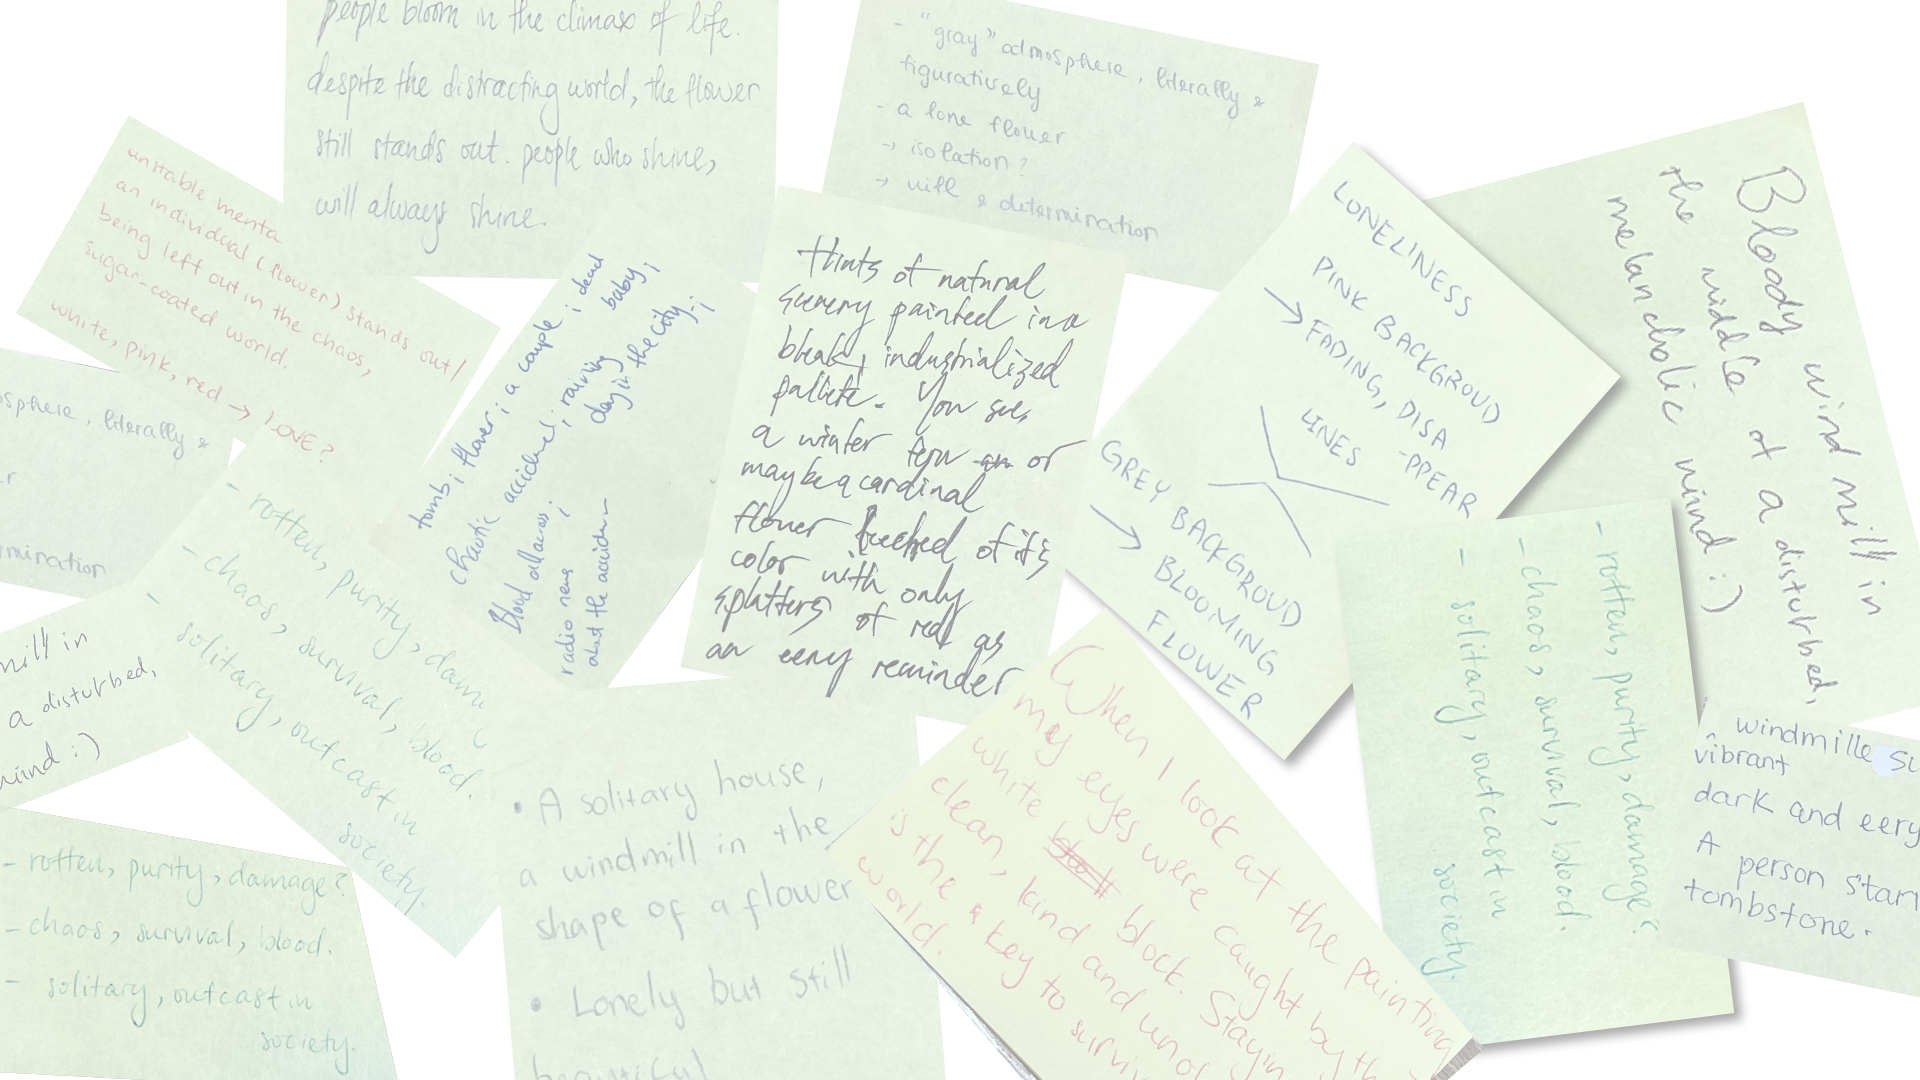 people bloom in the climax of life.
despite the distracting world, the flower
still stands out. people who shine,
will always shine.
- "gray" atmosphere, literally &
figuratively
- a lone flower
→ isolation?
→ will & determination
unstable menta
an individual (flower) stands out/
being left out in the chaos,
sugar-coated world.
white, pink, red → LOVE?
tomb; flower; a couple; dead
baby;
chaotic accident; raining
day in the city;
Blood all across;
radio news
about the accident
Hints of natural
scenery painted in a
bleak, industrialized
pallete. You see,
a winter fern or
maybe a cardinal
flower leeched of its
color with only
splatters of red as
an eery reminder
LONELINESS
PINK BACKGROUD
→ FADING, DISA
-PPEAR
LINES
GREY BACKGROUD
→ BLOOMING
FLOWER
Bloody wind mill in
the middle of a disturbed,
melancholic mind :)
sphere, literally &
r
rmination
- rotten, purity, dam
- chaos, survival, blood.
- solitary, outcast in
society.
mill in
a disturbed,
mind :)
- rotten, purity, damage?
- chaos, survival, blood.
- solitary, outcast in
society.
• A solitary house,
a windmill in the
shape of a flower
• Lonely but still
beautiful
When I look at the painting
my eyes were caught by th
white block. Stayin
clean, kind and
is the a key to surviv
world.
- rotten, purity, damage?
- chaos, survival, blood.
- solitary, outcast in
society.
windmille su
vibrant
dark and eery
A person star
tombstone.